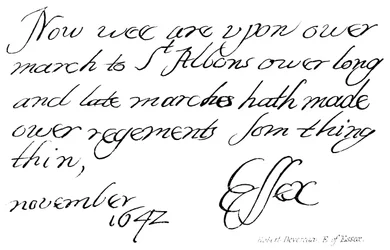 Now wee are vpon ower
march to St Albons ower long
and late marches hath made
ower regements som thing
thin,
november
1642
Essex
Robert Devereux E. of Essex.